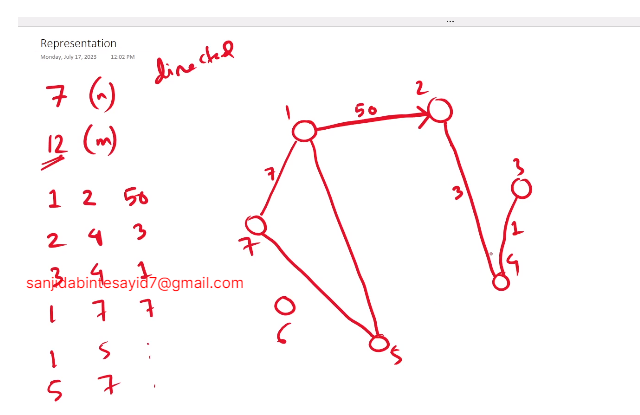 ...
Representation
Monday, July 17, 2023 12:02 PM
directed
7 (n)
12 (m)
1 2 50
2 4 3
3 4 1
sanjidabintesayid7@gmail.com
1 7 7
1 5 :
5 7 .
1
50
2
7
3
3
1
4
7
6
5